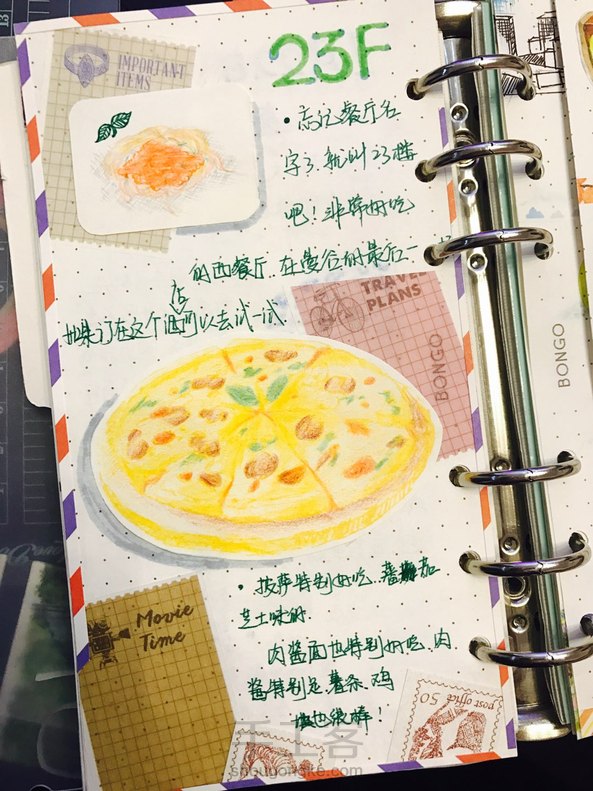 IMPORTANT
ITEMS
23F
•忘记餐厅名
字了.就叫23楼
吧!非常好吃
的西餐厅.在曼谷的最后一
TRAVEL
PLANS
店
如果订在这个酒可以去试一试
BONGO
BONGO
•披萨特别好吃.番茄
芝士味的.
Movie
Time
肉酱面也特别好吃.肉
酱特别足.薯条.鸡
块也很棒!
post office
50
手工客
shougongke.com